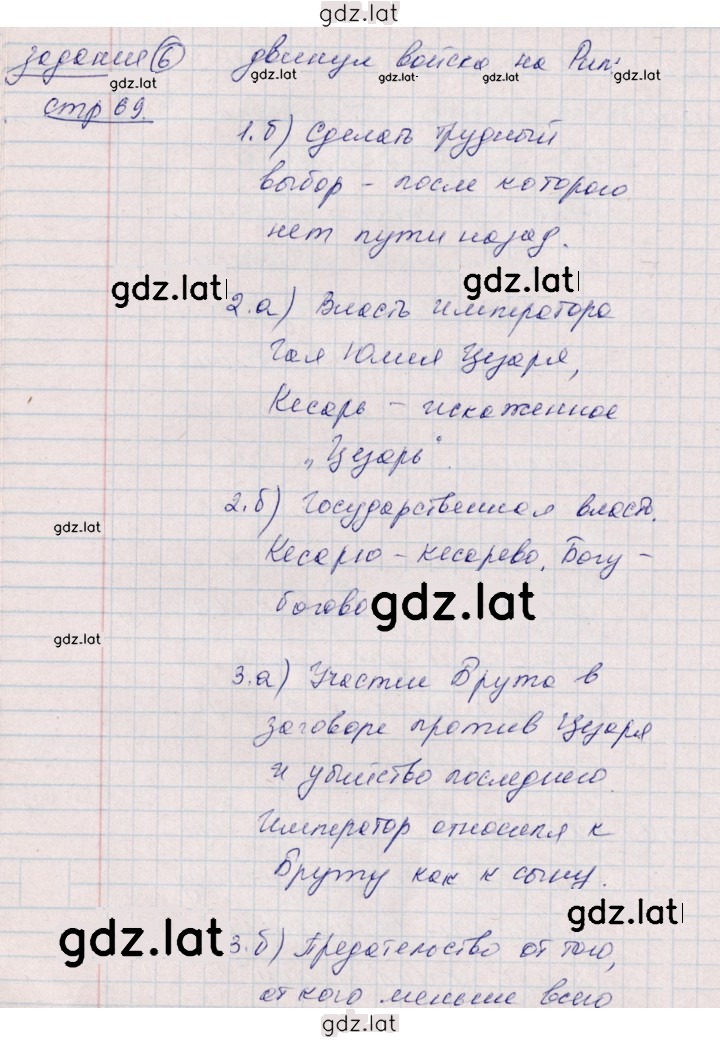 gdz.lat
задания 6 двинул войска на Рим.
gdz.lat gdz.lat gdz.lat gdz.lat
стр 69.
1.б) Сделать трудный
выбор - после которого
нет пути назад.
gdz.lat gdz.lat
2.а) Власть императора
Гая Юлия Цезаря,
Кесарь - искаженное
"Цезарь".
2.б) Государственная власть.
gdz.lat
Кесарю - кесарево, Богу -
богово
gdz.lat
gdz.lat
3.а) Участие Брута в
заговоре против Цезаря
и убийство последнего.
Император относился к
Бруту как к сыну.
gdz.lat
gdz.lat
3.б) Предательство от того,
от кого меньше всего
gdz.lat